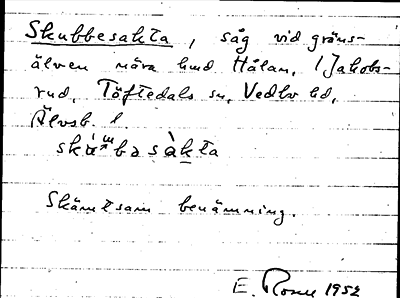 Skubbesakta, såg vid gräns-
älven nära hmd Hålan, i Jakobs-
rud, Töftedals sn, Vedbo hd,
Älvsb. l.
Skämtsam benämning.
E. Rosen 1952